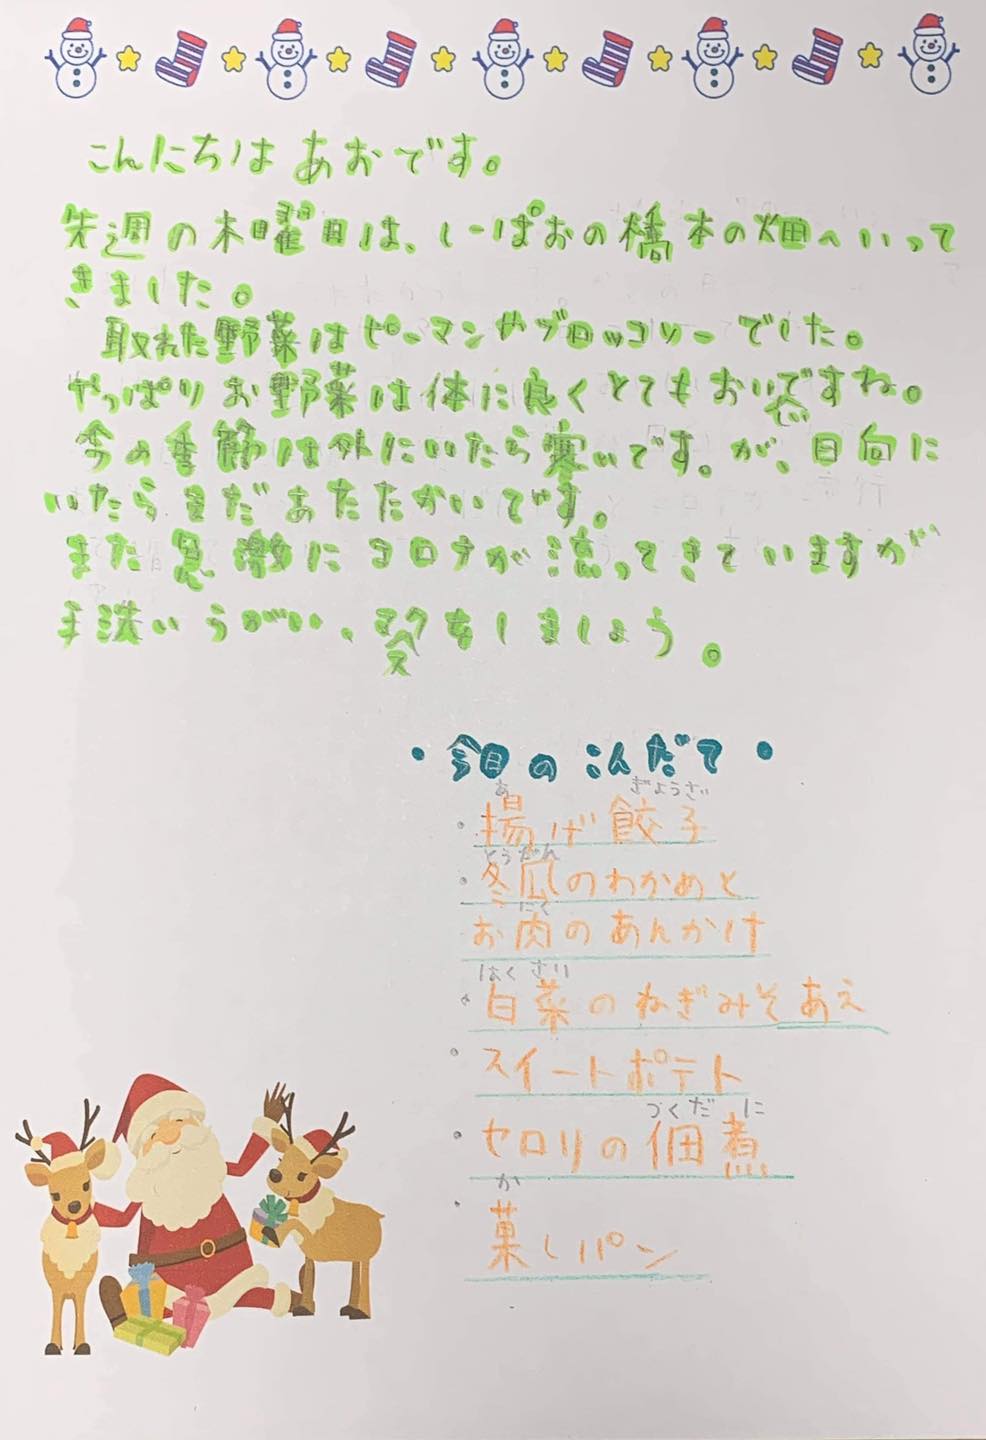 こんにちは あおです。
先週の木曜日は、しーぱおの橋本の畑へいって
きました。
取れた野菜はピーマンやブロッコリーでした。
やっぱりお野菜は体に良くとてもおいしいですね。
今の季節は外にいたら寒いです。が、日向に
いたらまだあたたかいです。
また急激にコロナが流ってきていますが
手洗いうがい、マスクをしましょう。
・今日のこんだて・
あ ぎょうざ
・揚げ餃子
とうがん
・冬瓜のわかめと
にく
お肉のあんかけ
はくさい
・白菜のねぎみそあえ
・スイートポテト
つくだに
・セロリの佃煮
か
・菓しパン